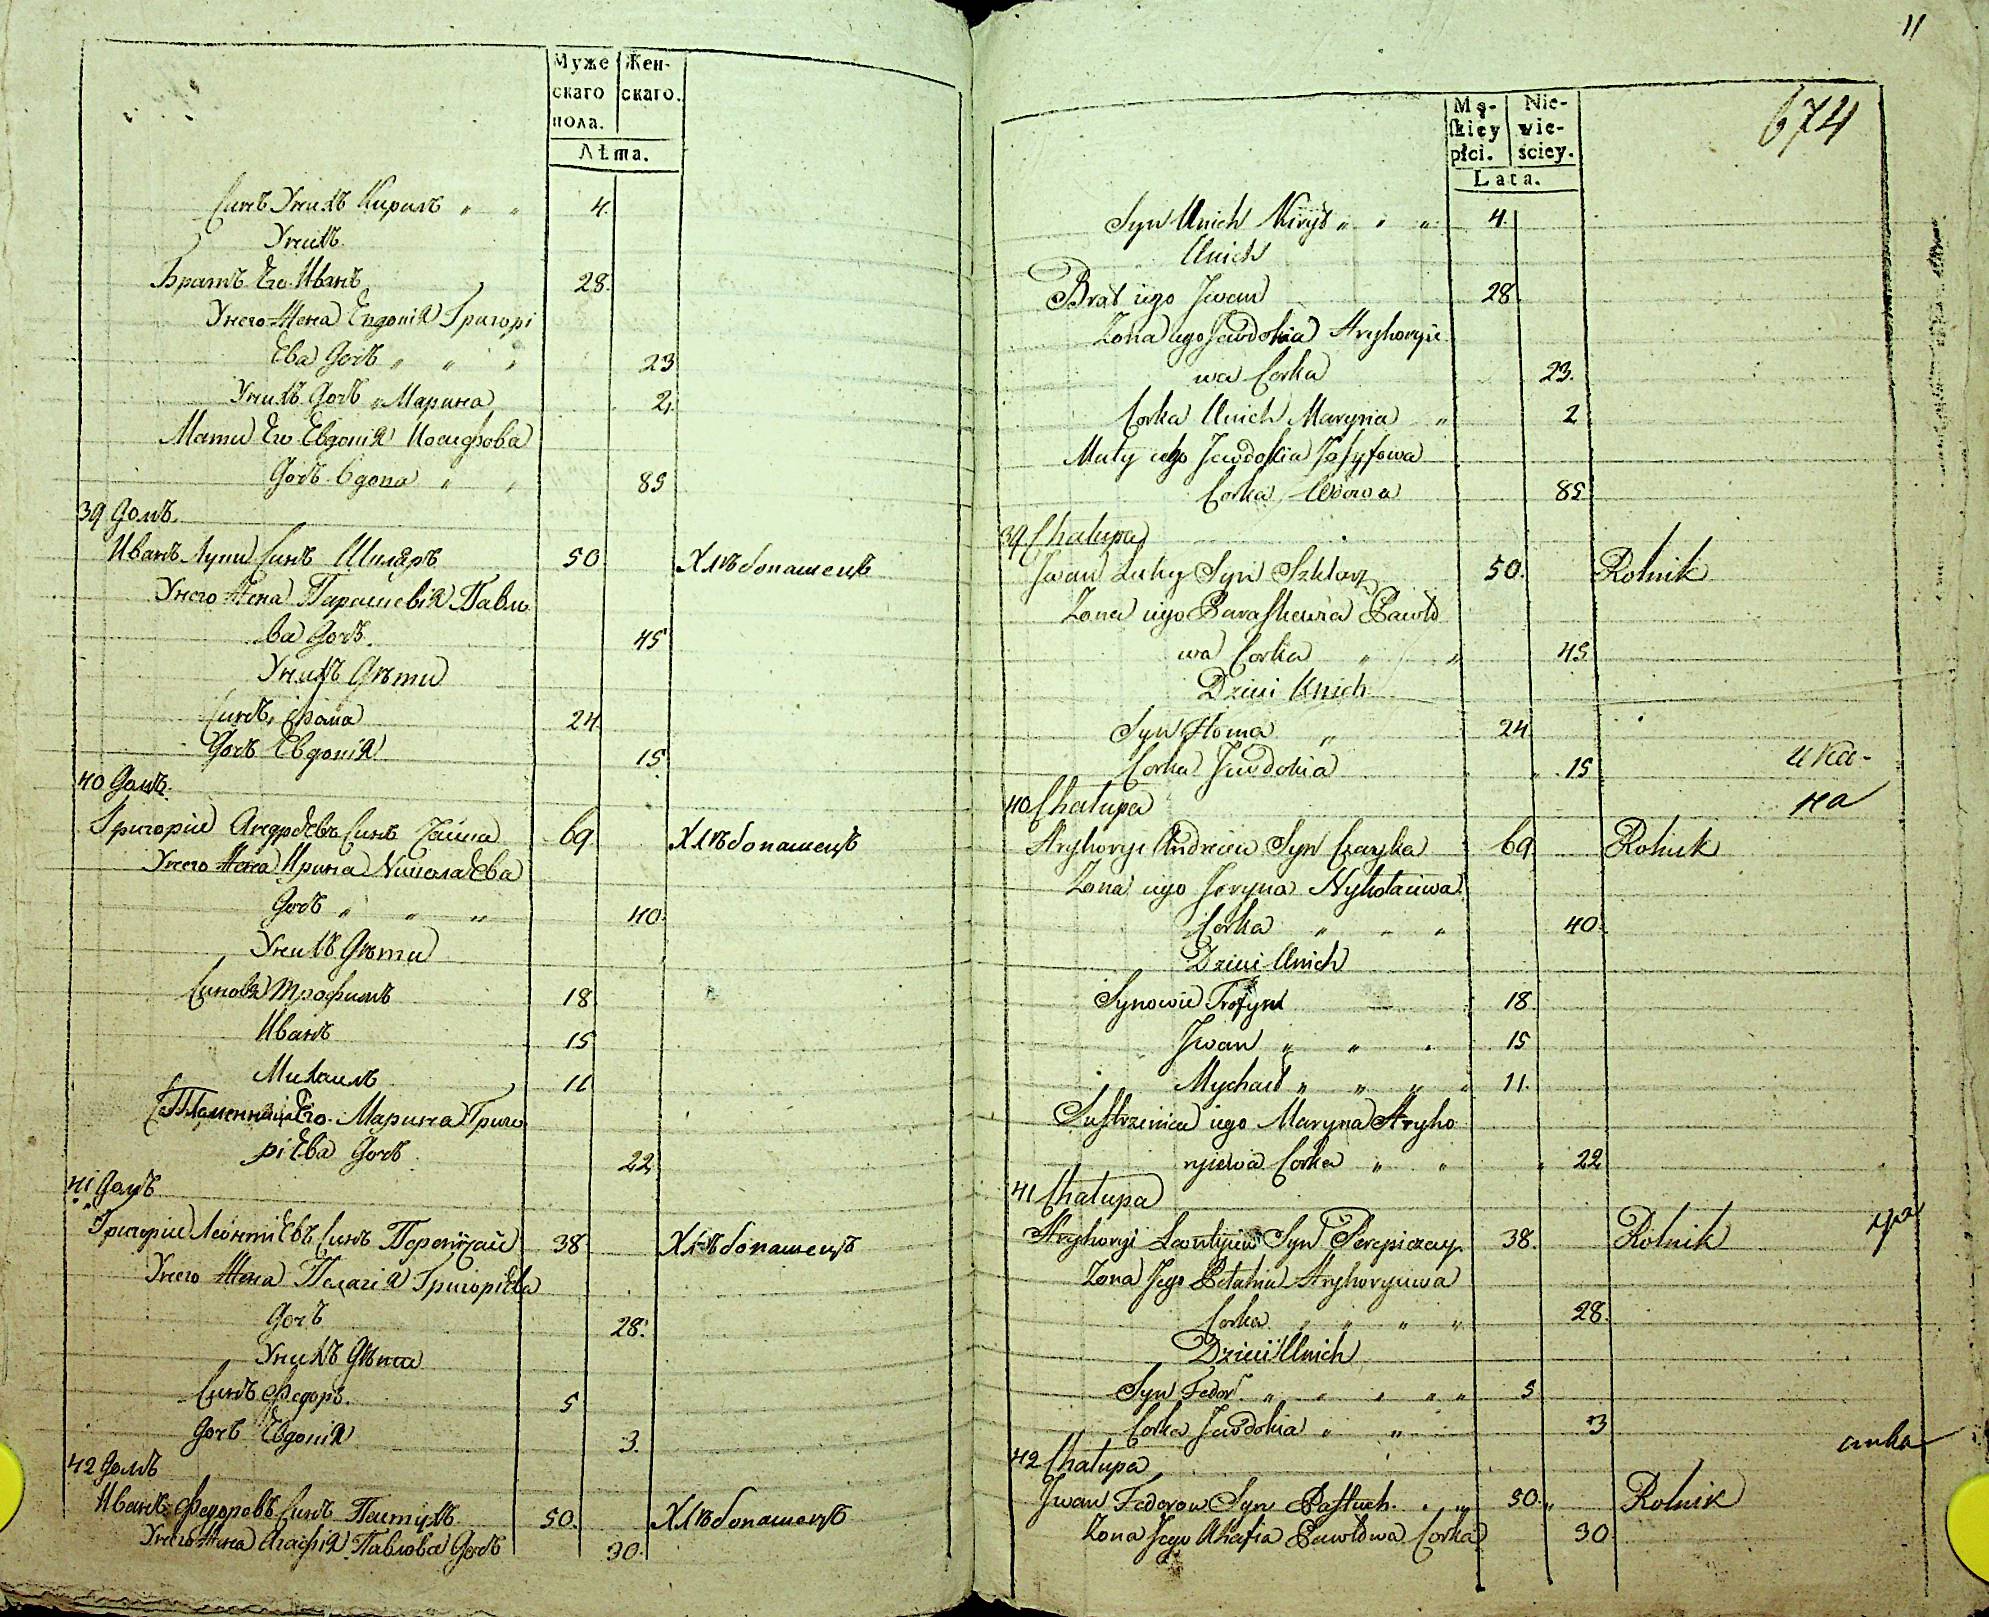 Муже
скаго
пола.
Жен-
скаго.
Лѣта.
Синъ Унихъ Кирилъ „ „ 4.
Унихъ
Братъ Его Иванъ 28.
Унего Жена Евдокія Григорі
Ева Дочь „ „ „ 23
Унихъ Дочь „ Марина 2.
Мати Его Евдокія Иосифова
Дочь Вдова „ „ 85
39 Домъ.
Иванъ Луки Синъ Шкляръ 50 Хлѣбопашецъ
Унего Жена Параскевія Павло
ва Дочь. 45
Унихъ Дѣти
Синъ, Фома 24.
Дочь Евдокія 15
40 Домъ.
Григорій Андрѣевъ Синъ Чайка 69. Хлѣбопашецъ
Унего Жена Ирина Николаѣва
Дочь „ „ „ 40.
Унихъ Дѣти
Синовя Трофимъ 18
Иванъ 15
Михаилъ 11
Его Марина Григо
ріѣва Дочь 22
41 Домъ
Григорій Леонтіѣвъ Синъ Перепічай 38 Хлѣбопашецъ
Унего Жена Пелагія Григоріѣва
Дочь 28.
Унихъ Дѣти
Синъ Федоръ. 5
Дочь Евдокія 3.
42 Домъ
Иванъ Федоровъ Синъ Пастухъ 50. Хлѣбопашецъ
Унего Жена Агафія Павлова Дочь 30.
11
674
Mę-
skiey
płci.
Nie-
wie-
ściey.
Lata.
Syn Unich Kirył „ „ „ 4.
Unich
Brat iego Jwan 28.
Zona iego Jewdokia Hryhoryie
wa Corka 23.
Corka Unich Maryna „ 2
Maty iego Jewdokia Josyfowa
Corka Wdowa 85
39 Chałupa
Jwan Luky Syn Szklarz 50. Rolnik
Zona iego Paraskewia Pawło
wa Corka „ „ 45.
Dzieci Unich
Syn Homa „ 24.
Corka Jewdokia 15
ика-
на
40 Chałupa
Hryhoryi Andreiew Syn Czayka 69. Rolnik
Zona iego Jeryna Nykołaiewa
Corka „ „ „ 40.
Dzieci Unich
Synowie Trofym 18.
Jwan „ „ „ 15
Mychaił „ „ „ „ 11.
Siestrzenica iego Maryna Hryho
ryiewa Corka „ „ „ 22
41 Chałupa
Hryhoryi Leontyiew Syn Perepiczay 38. Rolnik
Zona Jego Pełahia Hryhoryiewa
Corka „ „ „ „ 28.
Dzieci Unich
Syn Fedor „ „ „ „ „ 5
Corka Jewdokia „ „ 3
42 Chałupa
Jwan Fedorow Syn Pastuch. „ „ 50. „ Rolnik
Zona Jego Ahafia Pawłowa Corka 30.